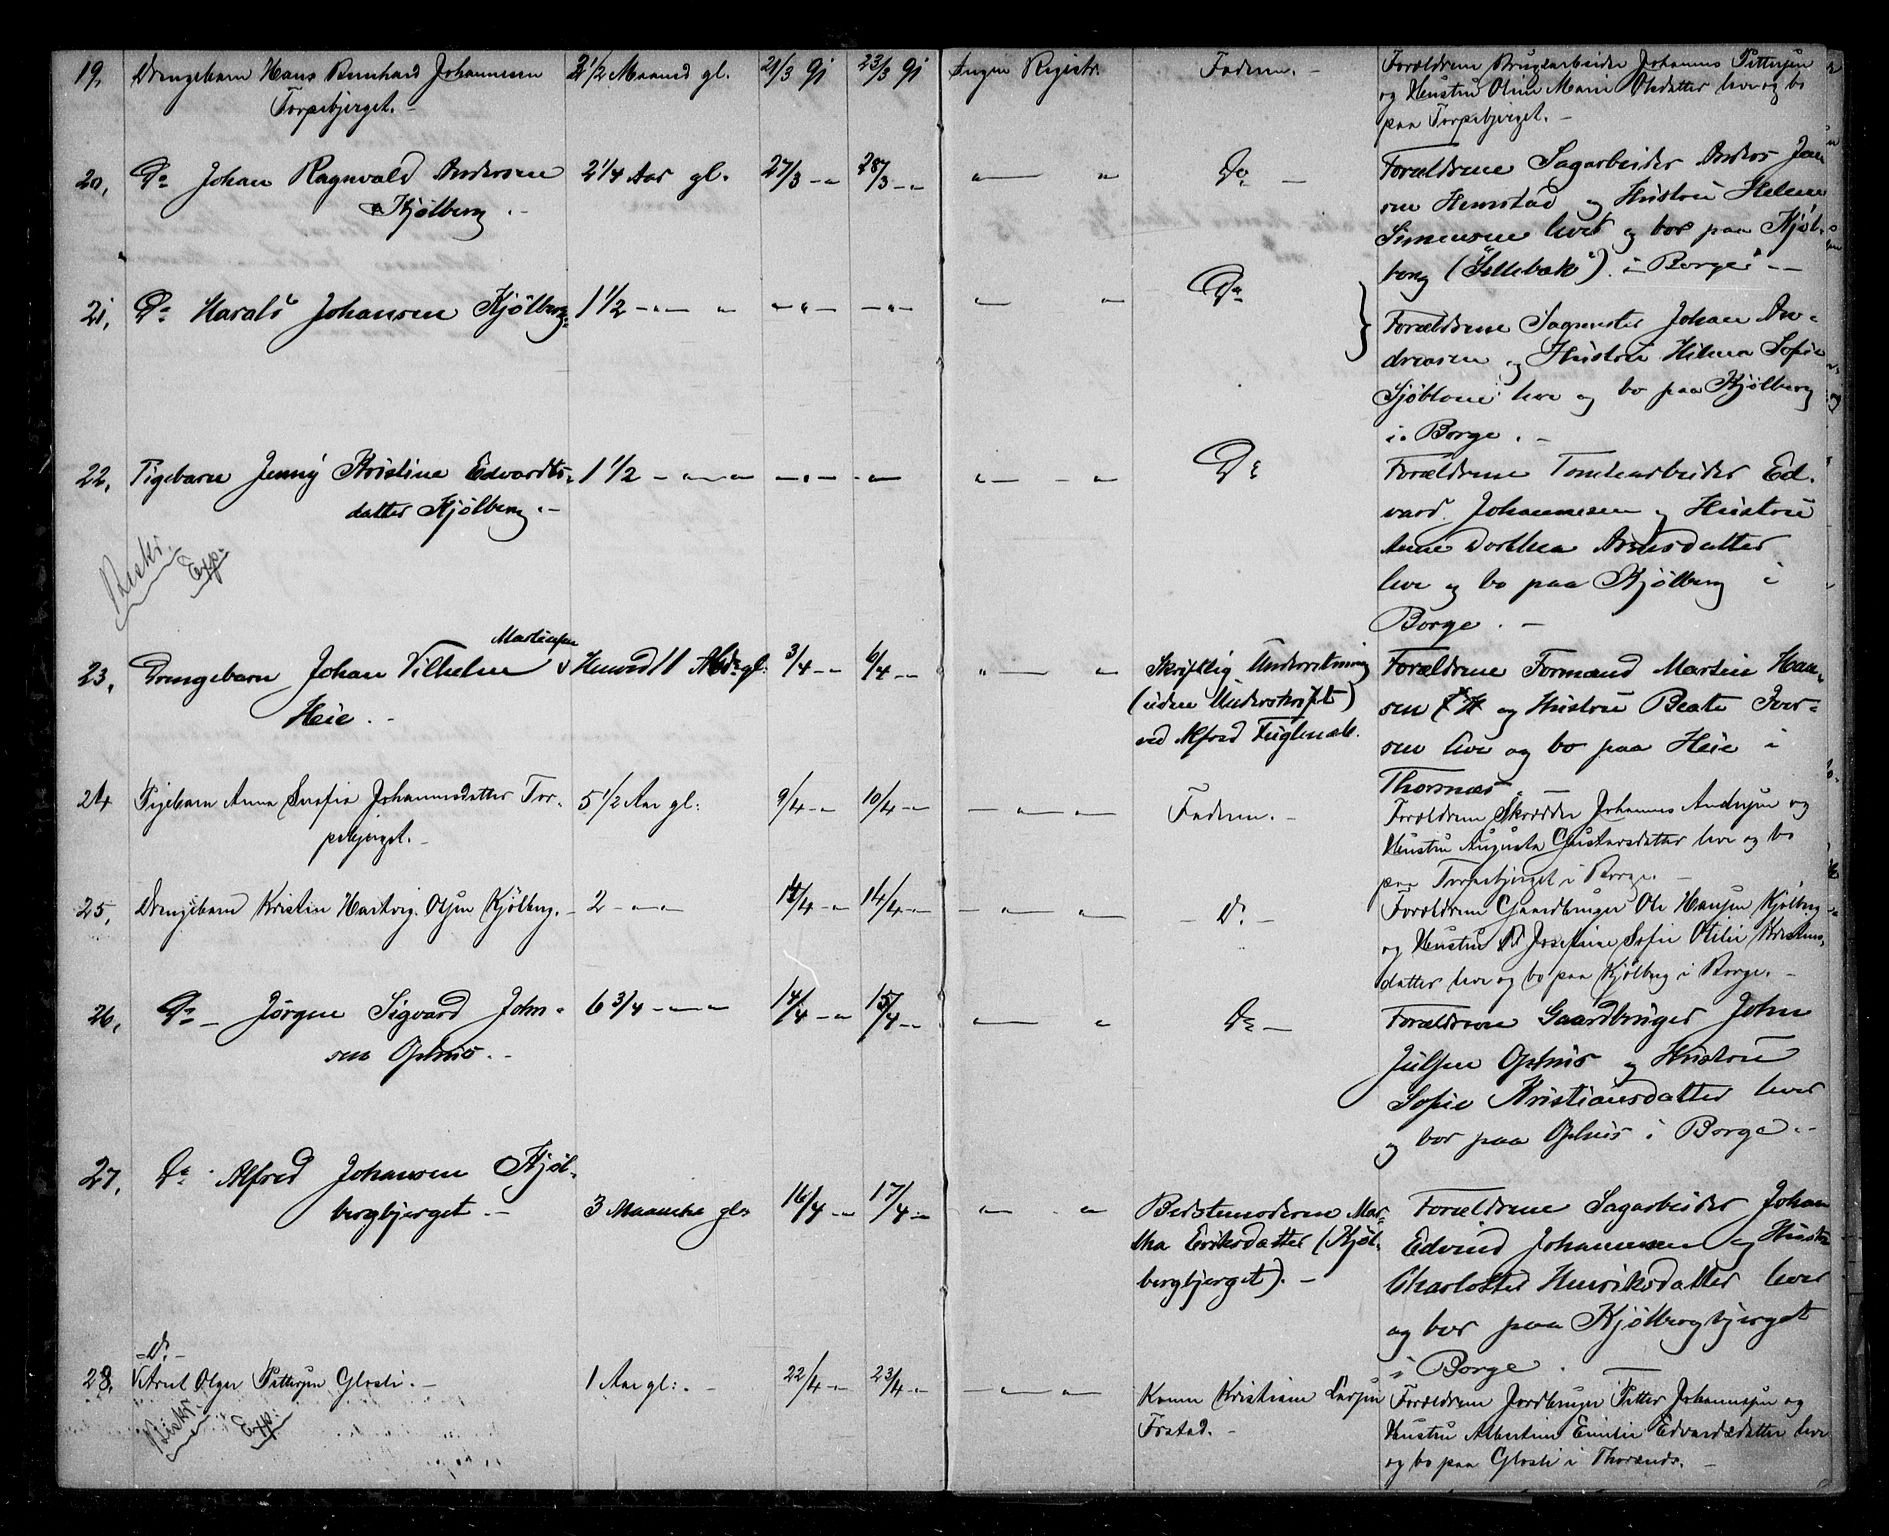 19, Drengebarn Hans Bernhard Johannesen 2 1/2 Maaned gl. 21/3 91 23/3 91 Ingen Registr. Faderen. – Forældrene Brugsarbeider Johannes Pettersen
Torpebjerget. – og Hustru Oline Marie Olsdatter leve og bo
paa Torpebjerget. –
20, Do Johan Ragnvald Andersen 2 1/4 Aar gl. 27/3 –„ 28/3 –„ „ — „ Do – Forældrene Sagarbeider Anders Jen
Kjølberg . – sen Hemstad og Hustru Helene
Simensen lever og bor paa Kjøl-
berg ("Lillebæk") i Borge –
21, Do Harald Johansen Kjølberg. 1 1/2 –„– „ –„– –„– „ — „ Do
Forældrene Sagmester Johan An-
dreasen og Hustru Hilma Sofie
Sjöblom leve og bo paa Kjølberg
i Borge . –
22, Pigebarn Jenny Kristine Edvards- 1 1/2 –„–„– –„– –„– „ — „ Do Forældrene Tomtearbeider Ed-
datter Kjølberg. – vard Johannesen og Hustru
Anne Dorthea Arnesdatter
Beskr. Exp. leve og bo paa Kjølberg i
Borge . –
Martinsen
23, Drengebarn Johan Vilhelm 3/4 –„ 6/4 –„ „ — „ Skriftlig Underretning Forældrene Formand Martin Han-
Heie . – (uden Underskrift) sen og Hustru Beate Iver-
ved Alfred Fuglenæb. sen leve og bo paa Heie i
Thorsnæs. –
24 Pigebarn Anna Serafia Johannesdatter Tor- 5 1/2 Aar gl: 9/4 –„ 10/4 –„ –„–„ Faderen. – Forældrene Skrædder Johannes Andersen og
pebjerget. – Hustru Augusta Gustavsdatter leve og bo
paa Torpebjerget i Borge. –
25, Drengebarn Kristen Hartvig Olsen Kjølberg. – 2 –„–„ 12/4 –„ 14/4 –„ –„–„ – Do – Forældrene Gaardbruger Ole Hansen Kjølberg
og Hustru Josefine Sofie Otilie Kristens-
datter leve og bo paa Kjølberg i Borge. –
26, Do – Jørgen Sigvard John- 6 3/4 –„–„ 14/4 –„ 15/4 –„ „ — „ Do – Forældrene Gaardbruger John
sen Ophus. – Julsen Ophus og Hustru
Sofie Kristiansdatter lever
og bor paa Ophus i Borge. –
27, Do Alfred Johansen Kjøl-
bergbjerget . – 3 Maaneder gl. 16/4 –„ 17/4 –„ „ — „ Bedstemoderen Mar- Forældrene Sagarbeider Johan
tha Eriksdatter (Kjøl- Edvind Johannesen og Hustru
bergbjerget). – Charlotte Henriksdatter lever
og bor paa Kjølbergbjerget
i Borge .
– Do –
28, Olger Pettersen Glosli. – 1 Aar gl: – 22/4 –„ 23/4 –„ –„–„ Kone Kristiane Larsen Forældrene Jordbruger Petter Johannesen og
Beskr. Exp. Frstad. – Hustru Albertine Emilie Edvardsdatter leve
og bo paa Glosli i Thorsnæs. –